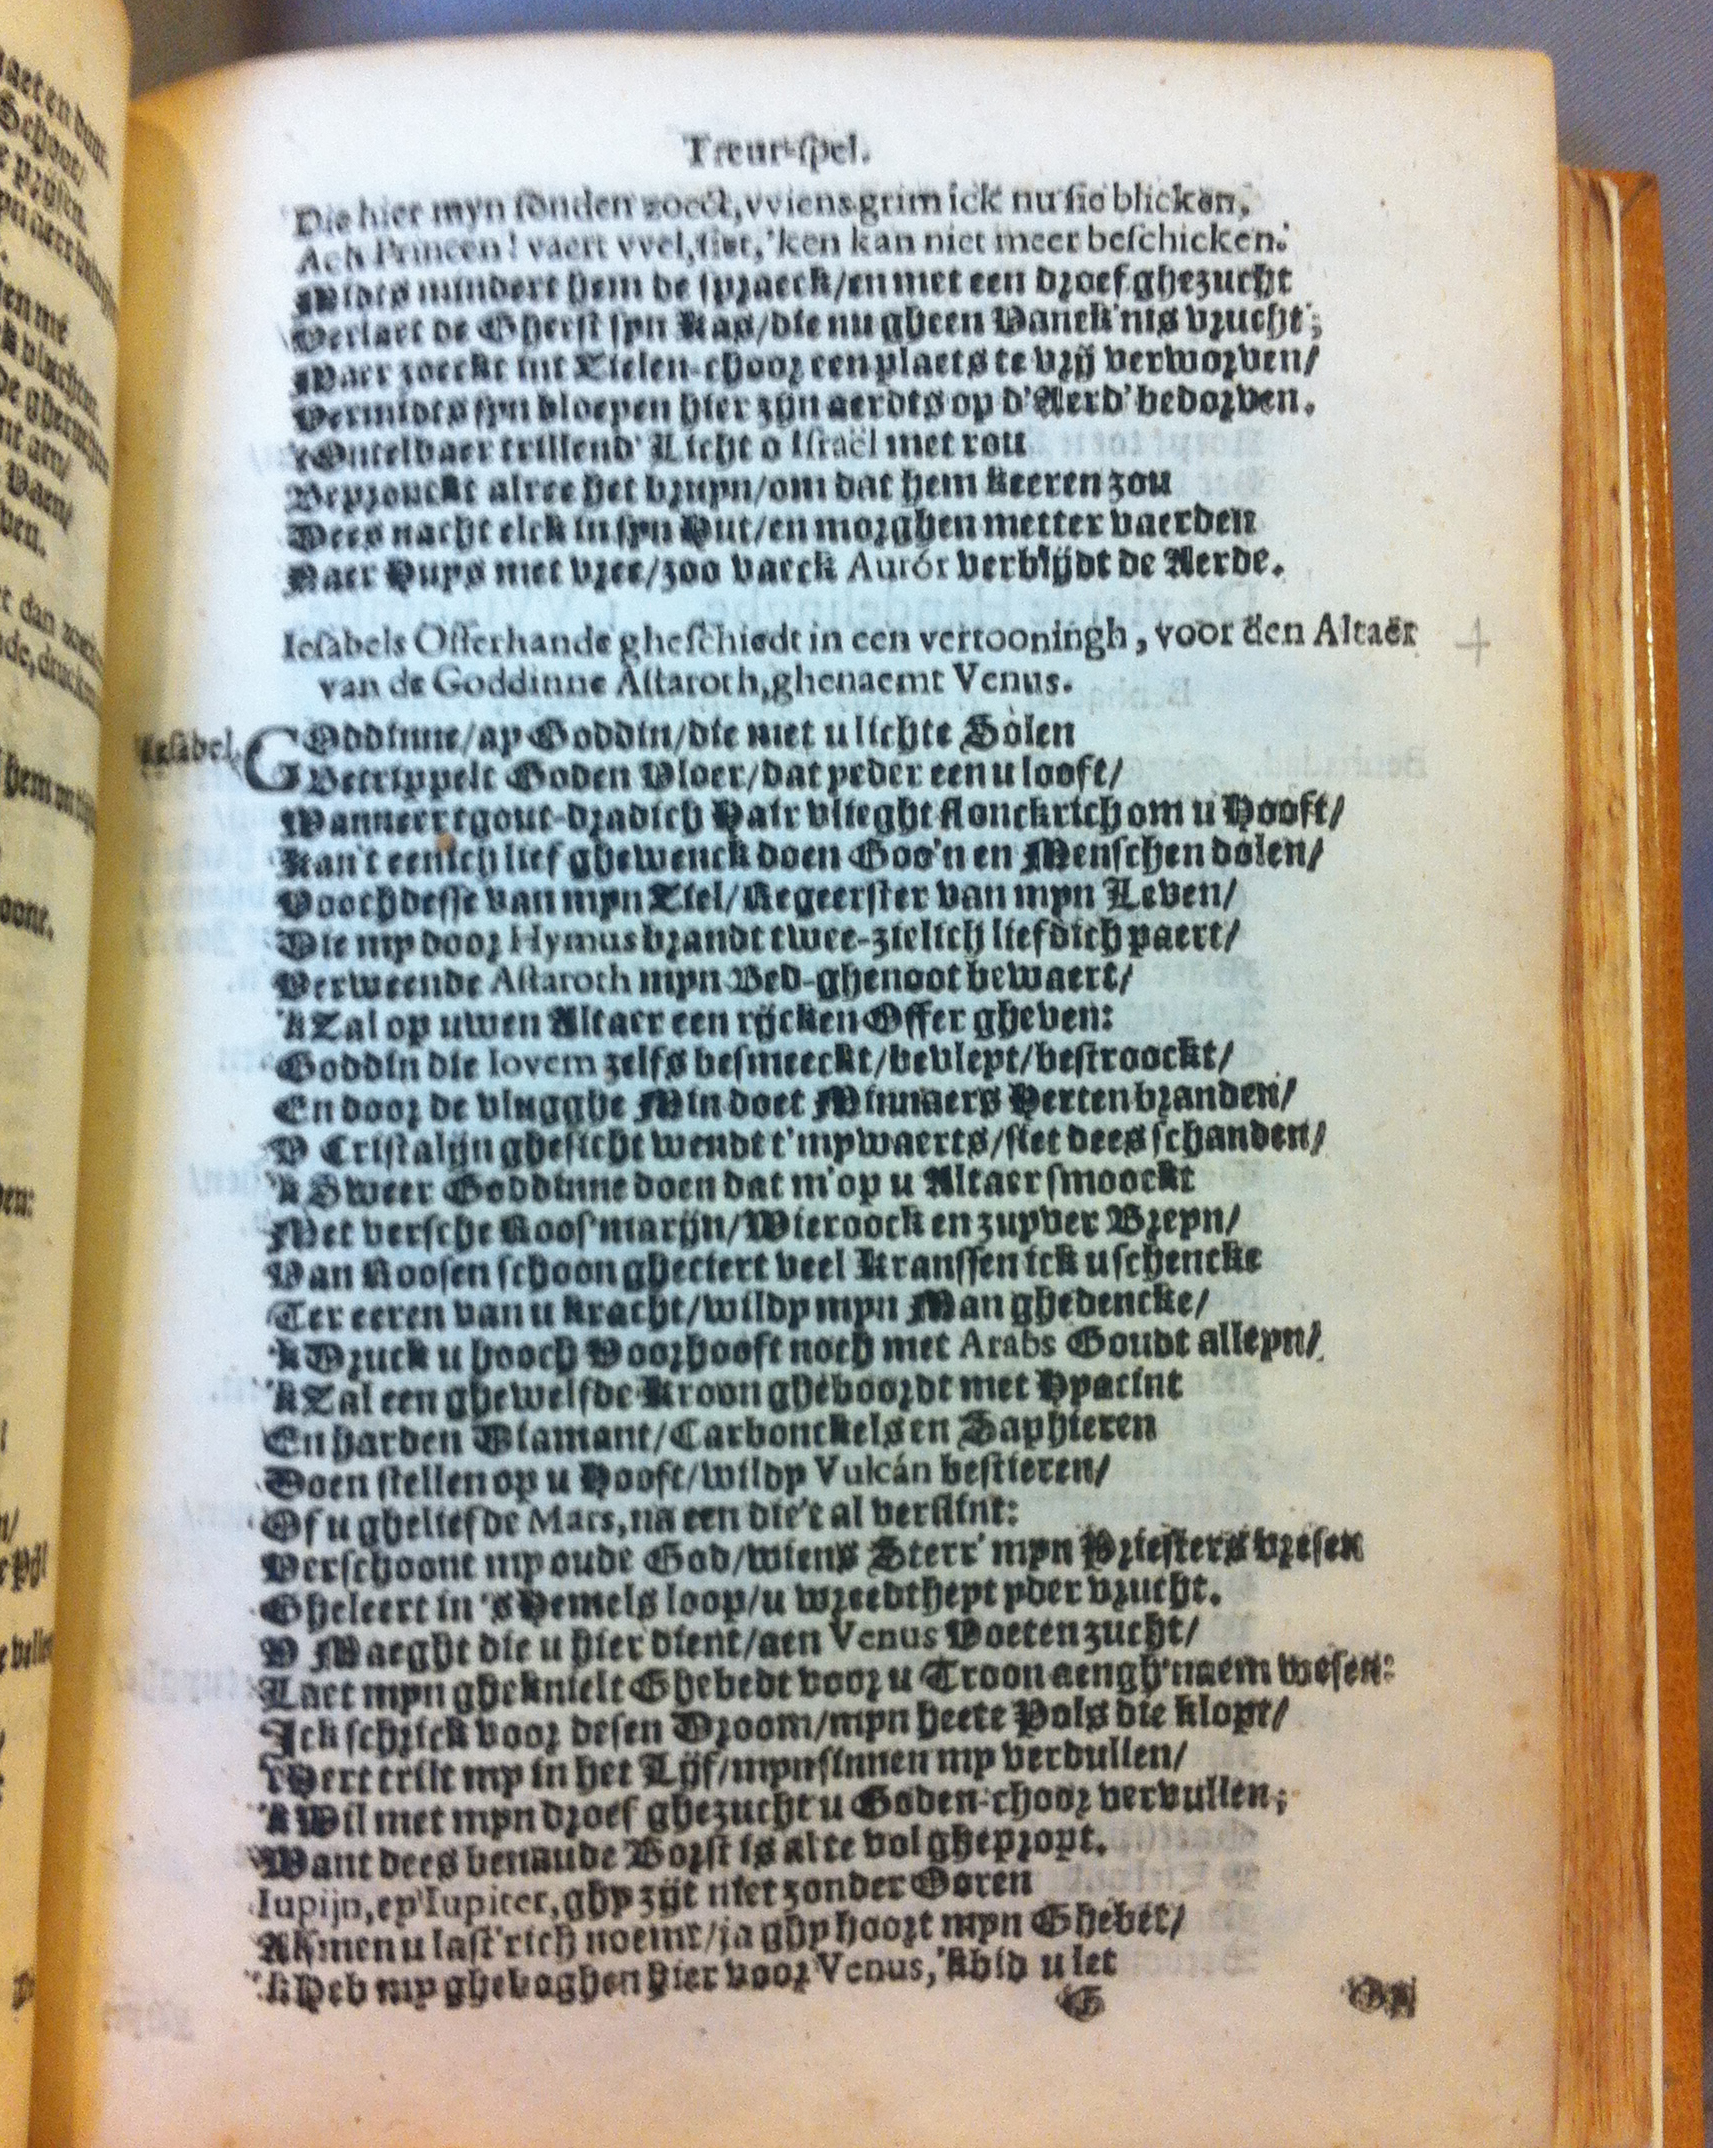 Treur-ſpel.
Die hier myn ſonden zoeckt, vviens grim ick nu ſie blicken,
Ach Princen! vaert vvel, ſiet, 'ken kan niet meer beſchicken.
Midts mindert hem de ſpraeck/ en met een droef ghezucht
Verlaet de Gheeſt ſyn Kas/ die nu gheen Vanck'nis vrucht;
Maer zoeckt int Zielen-choor een plaets te vrij verworven/
Vermidts ſyn bloeyen hier zijn aerdts op d'Aerd' bedorven.
'tOntelbaer trillend' Licht o Iſraël met rou
Bepronckt alree het bruyn/ om dat hem keeren zou
Dees nacht elck in ſyn Hut/ en morghen metter vaerden
Naer Huys met vree/ zoo vaeck Aurór verblijdt de Aerde.
Ieſabels Offerhande gheſchiedt in een vertooningh, voor den Altaer
van de Goddinne Aſtaroth, ghenaemt Venus.
Ieſabel. GOddinne/ ay Goddin/ die met u lichte Solen
Betrippelt Goden Vloer/ dat yeder een u looft/
Wanneer tgout-dradich Hair vlieght flonckrich om u Hooft/
Kan't eenich lief ghewenck doen Goo'n en Menſchen dolen/
Voochdeſſe van myn Ziel/ Regeerſter van myn Leven/
Die my door Hymus brandt twee-zielich liefdich paert/
Verweende Aſtaroth myn Bed-ghenoot bewaert/
'kZal op uwen Altaer een rijcken Offer gheven:
Goddin die Iovem zelfs beſmeeckt/ bevleyt/ beſtroockt/
En door de vlugghe Min doet Minnaers Herten branden/
V Criſtalijn gheſicht wendt t'mywaerts/ ſiet dees ſchanden/
'kSweer Goddinne doen dat m'op u Altaer ſmoockt
Met verſche Rooſ'marijn/ Wieroock en zuyver Breyn/
Van Rooſen ſchoon gheciert veel Kranſſen ick u ſchencke
Ter eeren van u kracht/ wildy myn Man ghedencke/
'kDruck u hooch Voorhooft noch met Arabs Goudt alleyn/
'kZal een ghewelfde Kroon gheboordt met Hyacint
En harden Diamant/ Carbonckels en Saphieren
Doen ſtellen op u Hooft/ wildy Vulcán beſtieren/
Of u ghelieſde Mars, na een die't al verſlint:
Verſchoont my oude God/ wiens Sterr' myn Prieſters vreſen
Gheleert in 's Hemels loop/ u wreedtheyt yder vrucht.
V Maeght die u hier dient/ aen Venus Voeten zucht/
Laet myn gheknielt Ghebedt voor u Troon aengh'naem weſen:
Ick ſchrick voor deſen Droom/ myn heete Pols die klopt/
tHert trilt my in het Lijf/ myn ſinnen my verdullen/
'kWil met myn droef ghezucht u Goden-choor vervullen;
Want dees benaude Borſt is al te vol ghepropt.
Iupijn, ey Iupiter, ghy zijt niet zonder Ooren
Als men u laſt'rich noemt/ ja ghy hoort myn Ghebet/
'kHeb my gheboghen hier voor Venus, 'kbid u let
G